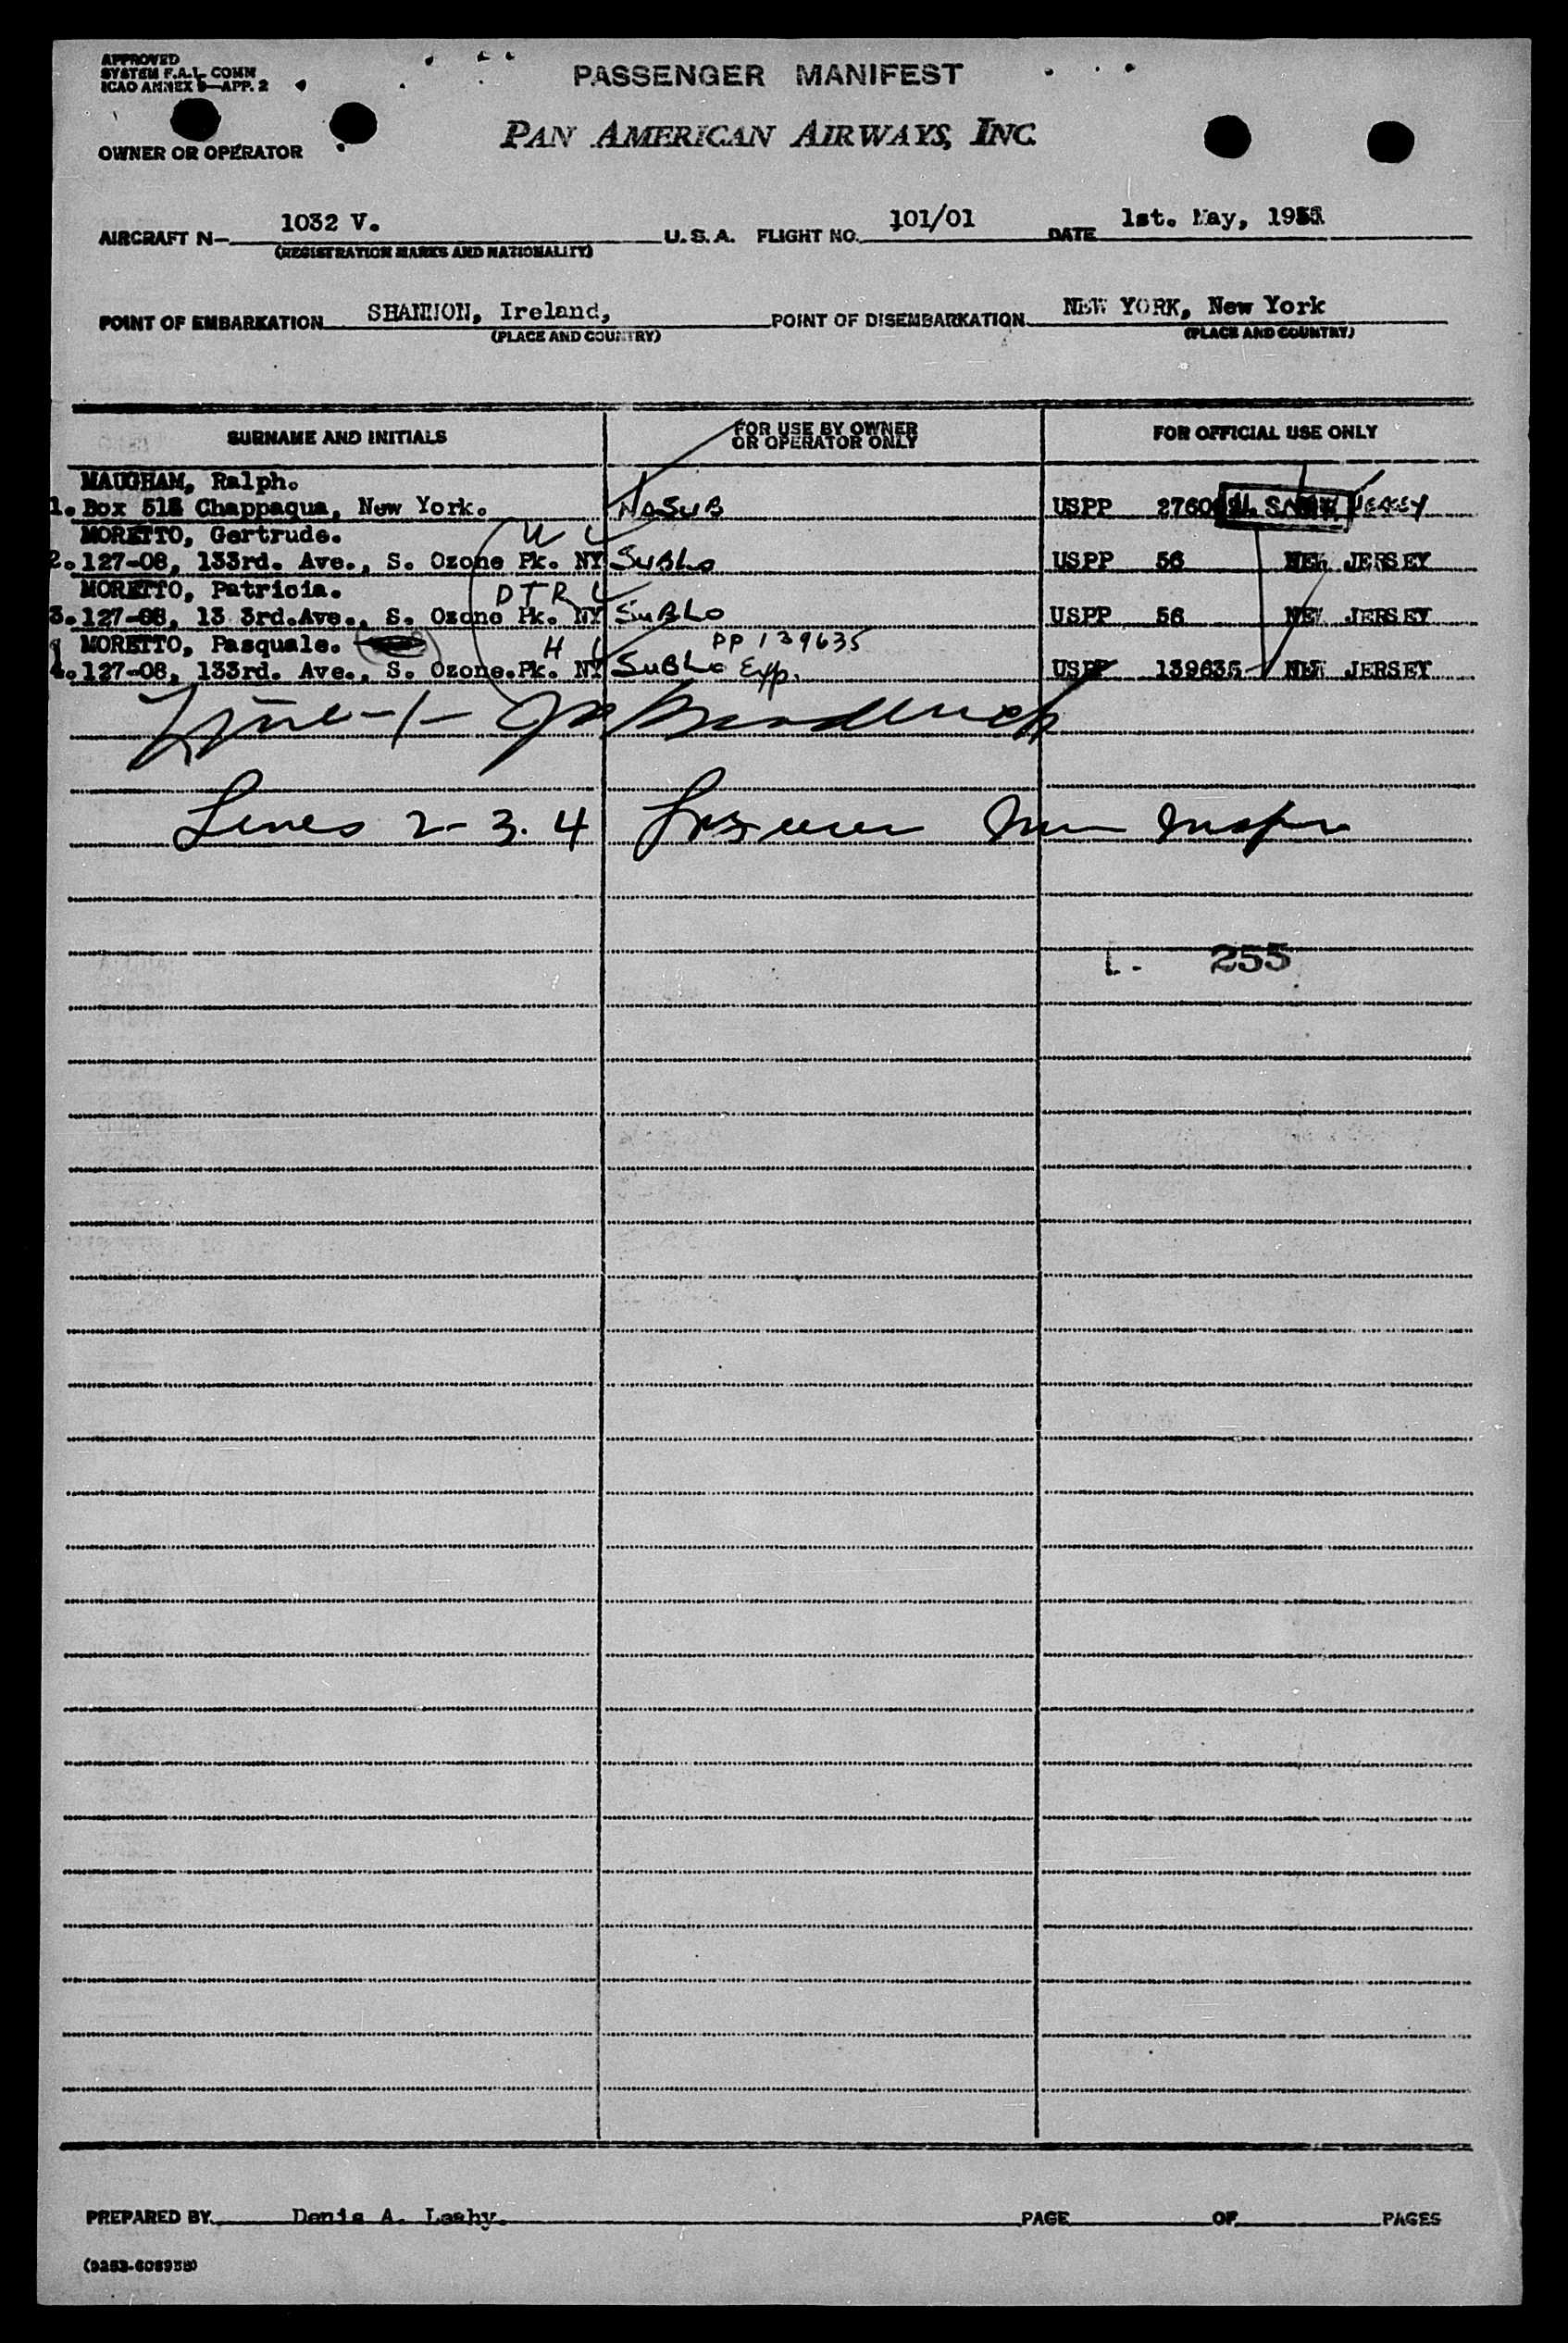 APPROVED
SYSTEM F.A.L. COMM
ICAO ANNEX 9—APP. 2
PASSENGER MANIFEST
PAN AMERICAN AIRWAYS, INC.
OWNER OR OPERATOR
AIRCRAFT N— 1032 V. U.S.A. FLIGHT NO. 101/01 DATE 1st. May,
(REGISTRATION MARKS AND NATIONALITY)
POINT OF EMBARKATION SHANNON, Ireland, POINT OF DISEMBARKATION NEW YORK, New York
(PLACE AND COUNTRY) (PLACE AND COUNTRY)
SURNAME AND INITIALS FOR USE BY OWNER OR OPERATOR ONLY FOR OFFICIAL USE ONLY
MAUGHAM, Ralph.
1. Box Chappaqua, New York. NASUB USPP JERSEY
MORETTO, Gertrude. W
2. 127-08, 133rd. Ave., S. Ozone Pk. NY SUBLO USPP 56 NEW JERSEY
MORETTO, Patricia. DTR
3. 127-08, 13 3rd.Ave., S. Ozone Pk. NY SUBLO USPP 56 NEW JERSEY
MORETTO, Pasquale. H PP 139635
4. 127-08, 133rd. Ave., S. Ozone.Pk. NY SUBLO Exp. USPP 139635 NEW JERSEY
Line - 1 -
Lines 2 - 3. 4
255
PREPARED BY Denis A. Leahy. PAGE OF PAGES